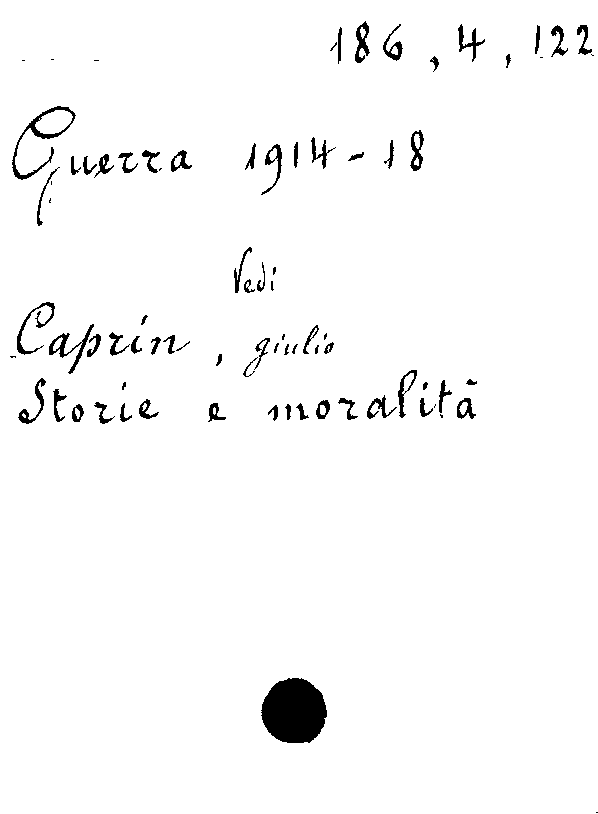 186, 4, 122
Guerra 1914-18
Vedi
Caprin, giulio
Storie e moralità